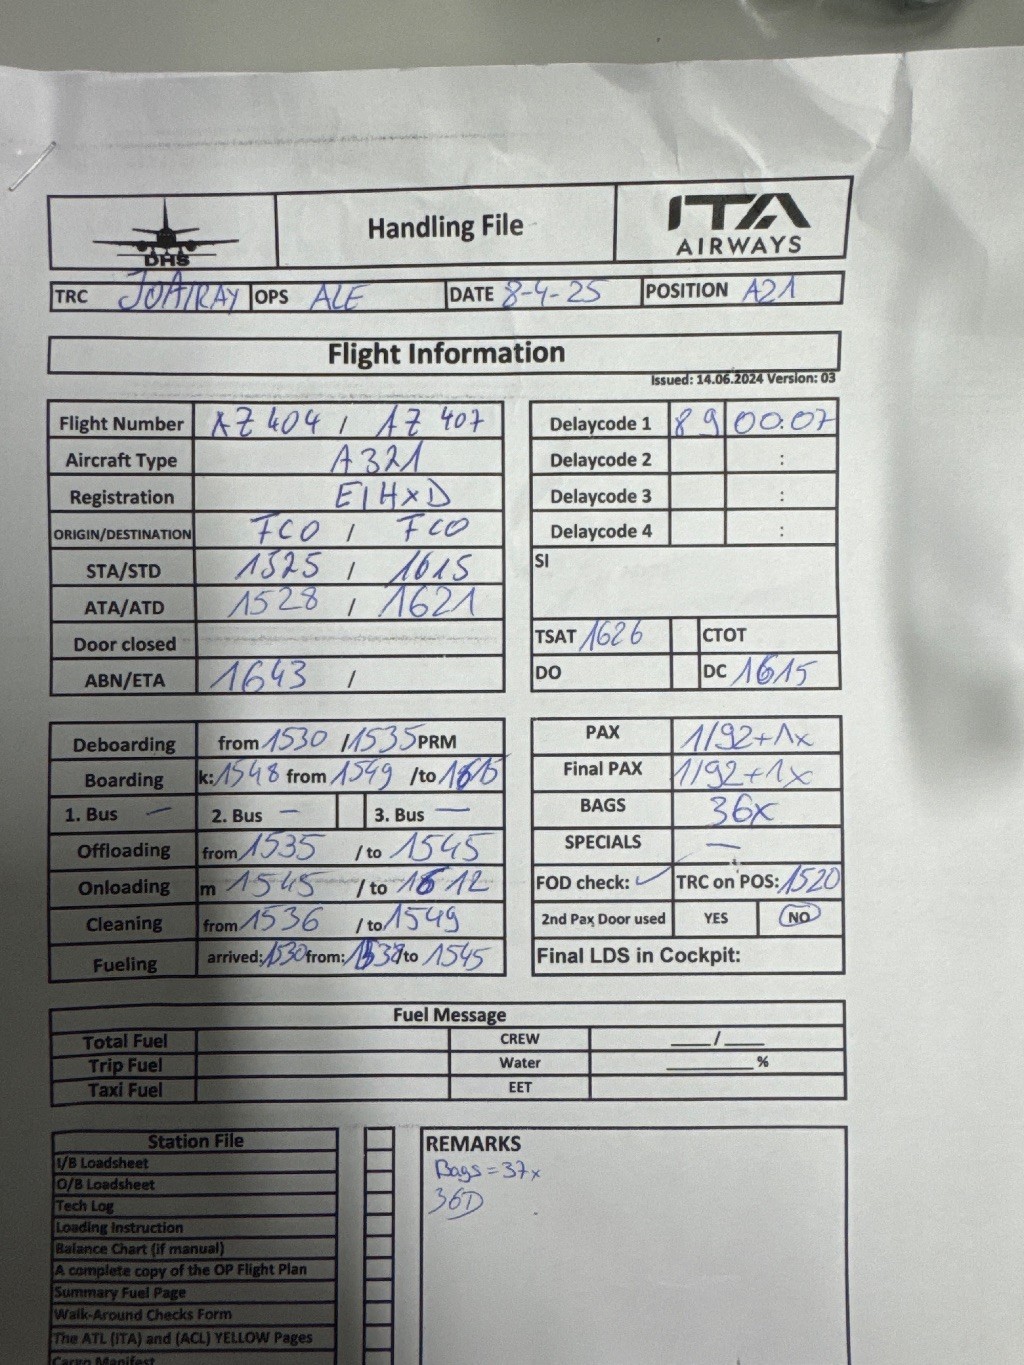 DHS
Handling File
ITA
AIRWAYS
TRC JOAIRAY OPS ALE DATE 8-4-25 POSITION A21
Flight Information
Issued: 14.06.2024 Version: 03
Flight Number AZ 404 / AZ 407
Aircraft Type A321
Registration EIHXD
ORIGIN/DESTINATION FCO / FCO
STA/STD 1525 / 1615
ATA/ATD 1528 / 1621
Door closed
ABN/ETA 1643 /
Delaycode 1 89 00:07
Delaycode 2 :
Delaycode 3 :
Delaycode 4 :
SI
TSAT 1626 CTOT
DO DC 1615
Deboarding from 1530 /1535 PRM
Boarding k: 1548 from 1549 /to 1615
1. Bus — 2. Bus — 3. Bus —
Offloading from 1535 /to 1545
Onloading m 1545 /to 1612
Cleaning from 1536 /to 1549
Fueling arrived: 1530 from: 1538 /to 1545
PAX 1/92+1x
Final PAX 1/92+1x
BAGS 36x
SPECIALS —
FOD check: ✓ TRC on POS: 1520
2nd Pax Door used YES NO
Final LDS in Cockpit:
Fuel Message
Total Fuel CREW ___/___
Trip Fuel Water ______%
Taxi Fuel EET
Station File
I/B Loadsheet
O/B Loadsheet
Tech Log
Loading Instruction
Balance Chart (if manual)
A complete copy of the OP Flight Plan
Summary Fuel Page
Walk-Around Checks Form
The ATL (ITA) and (ACL) YELLOW Pages
Cargo Manifest
REMARKS
Bags = 37x
36D